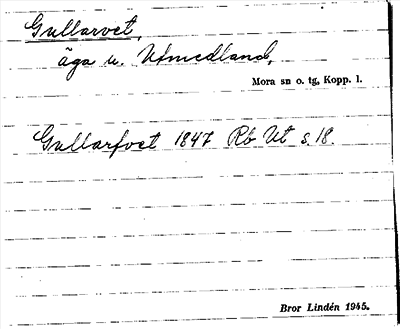 Gullarvet,
äga u. Utmedland,
Mora sn o. tg, Kopp. l.
Gullarfvet 1847 Rb Ut s. 18.
Bror Lindén 1945.